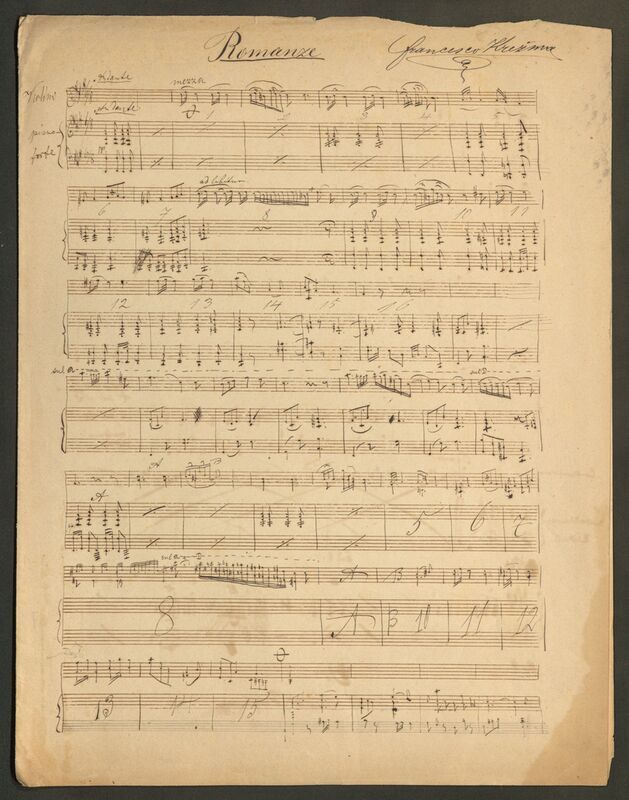 Romanze
Francesco Krežma
Violini
Andante
mezza
Andante
piano
forte
1 2 3 4 5
ad libitum
6 7 8 9 10 11
12 13 14 15 16
sul a
sul D
A
A
5 6 7
A B
8 A B 10 11 12
13 14 15